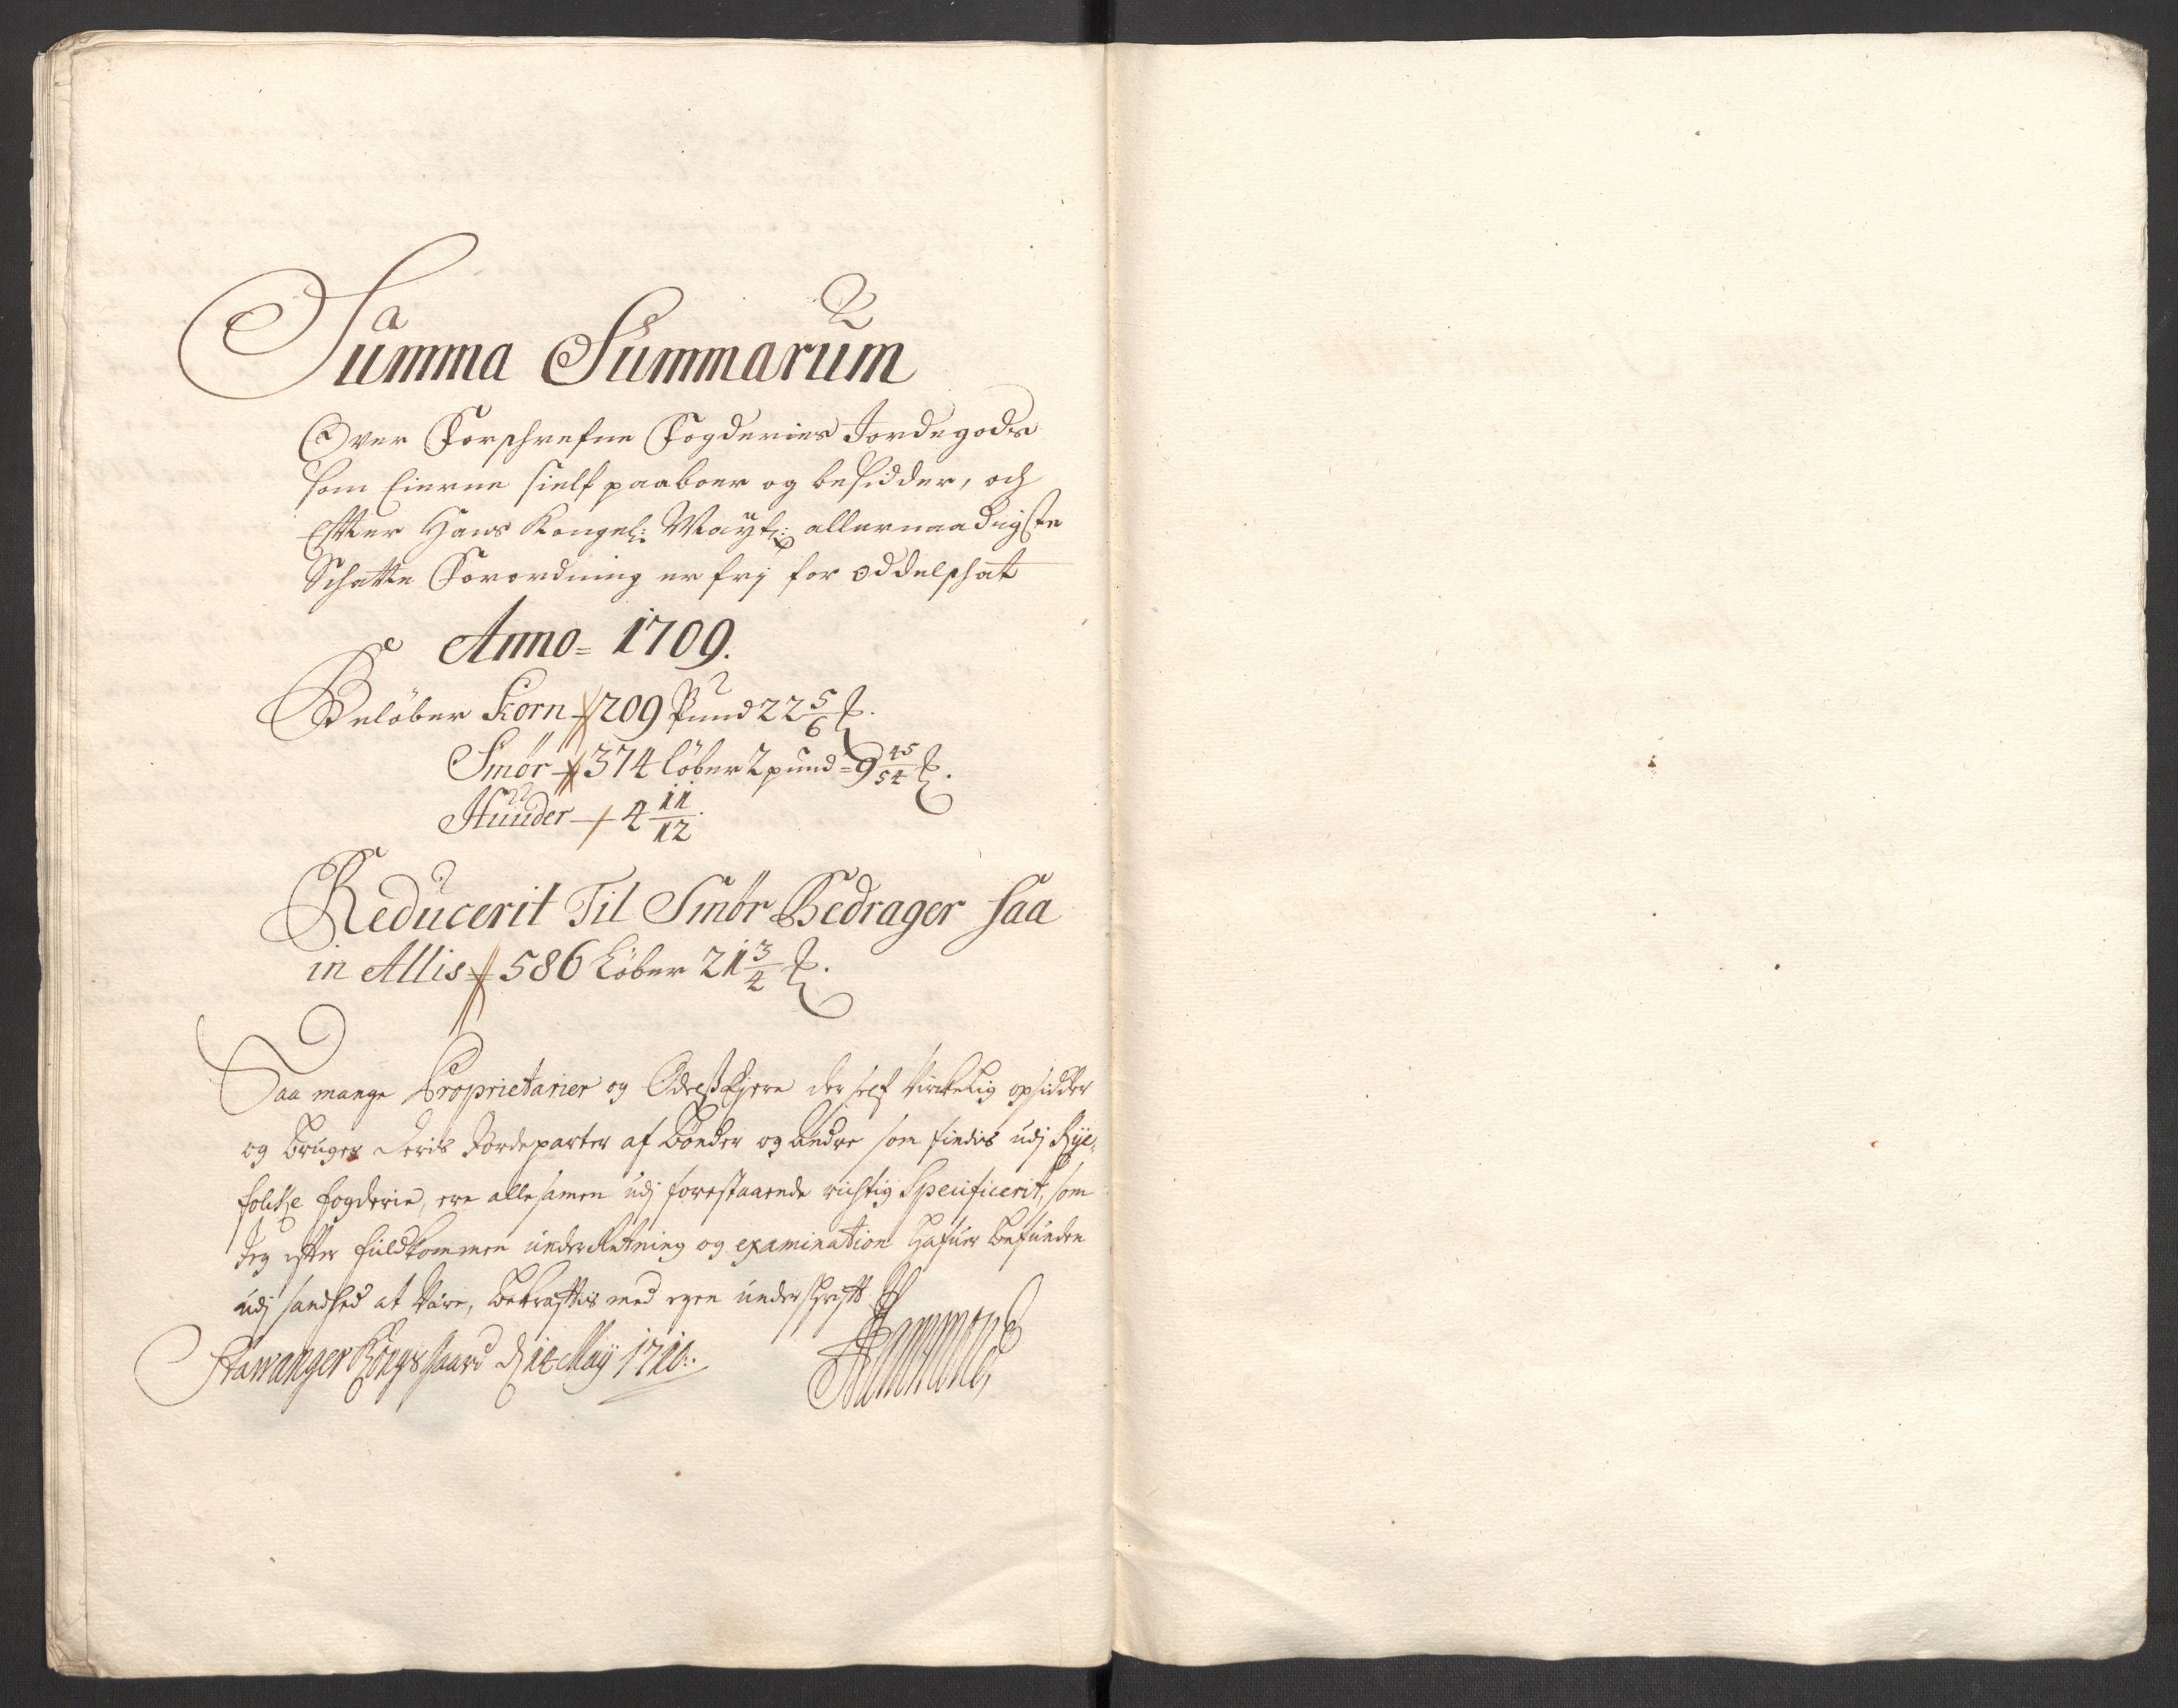 Summa Summarum
Over Forschrefne Fogderies Jordegods
som Eierne sielf paaboer og besidder, och
Effter Hans Kongel: Mayt: allernaadigste
Schatte Forordning er frj for oddelschat
Anno = 1709.
Beløber Korn 209 Pund 22 5/6 ℔.
Smør 374 løber 2 pund = 9 45/54 ℔.
Huuder 4 11/12.
Reducerit Til Smør Bedrager saa
in Allis 586 Løber 21 3/4 ℔.
Saa mange Proprietarier og Odelß Ejere der self Virkelig opsidder
og bruger deris Jordeparter af bønder og andre som findis udj Rye-
folche fogderie, ere allesamen udj forestaaende richtig Specificerit, som
Jeg efter fuldkommen underRetning og examination hafuer befunden
udj sandhed at Være, bekrefftis med egen underschrifft
Stawanger Kongsgaard d 14 Maij 1710.